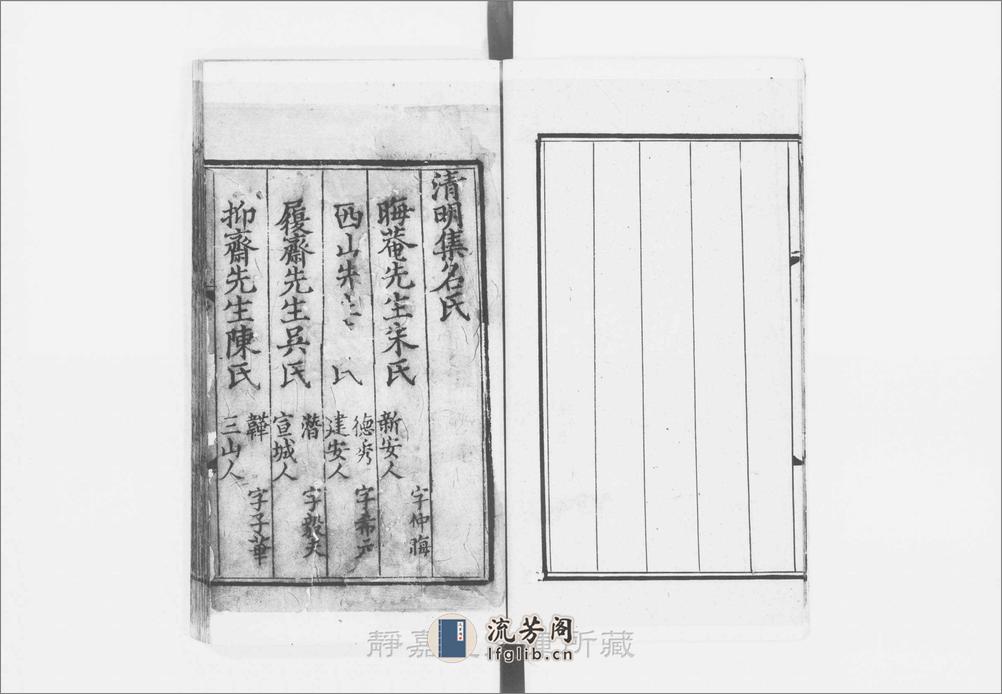 清明集名氏
晦菴先生朱氏 字仲晦
新安人
西山先生 氏 德秀 字希元
建安人
履齋先生吳氏 潛 字毅夫
宣城人
抑齋先生陳氏 韡 字子華
三山人
靜嘉 所藏
流芳阁
lfglib.cn